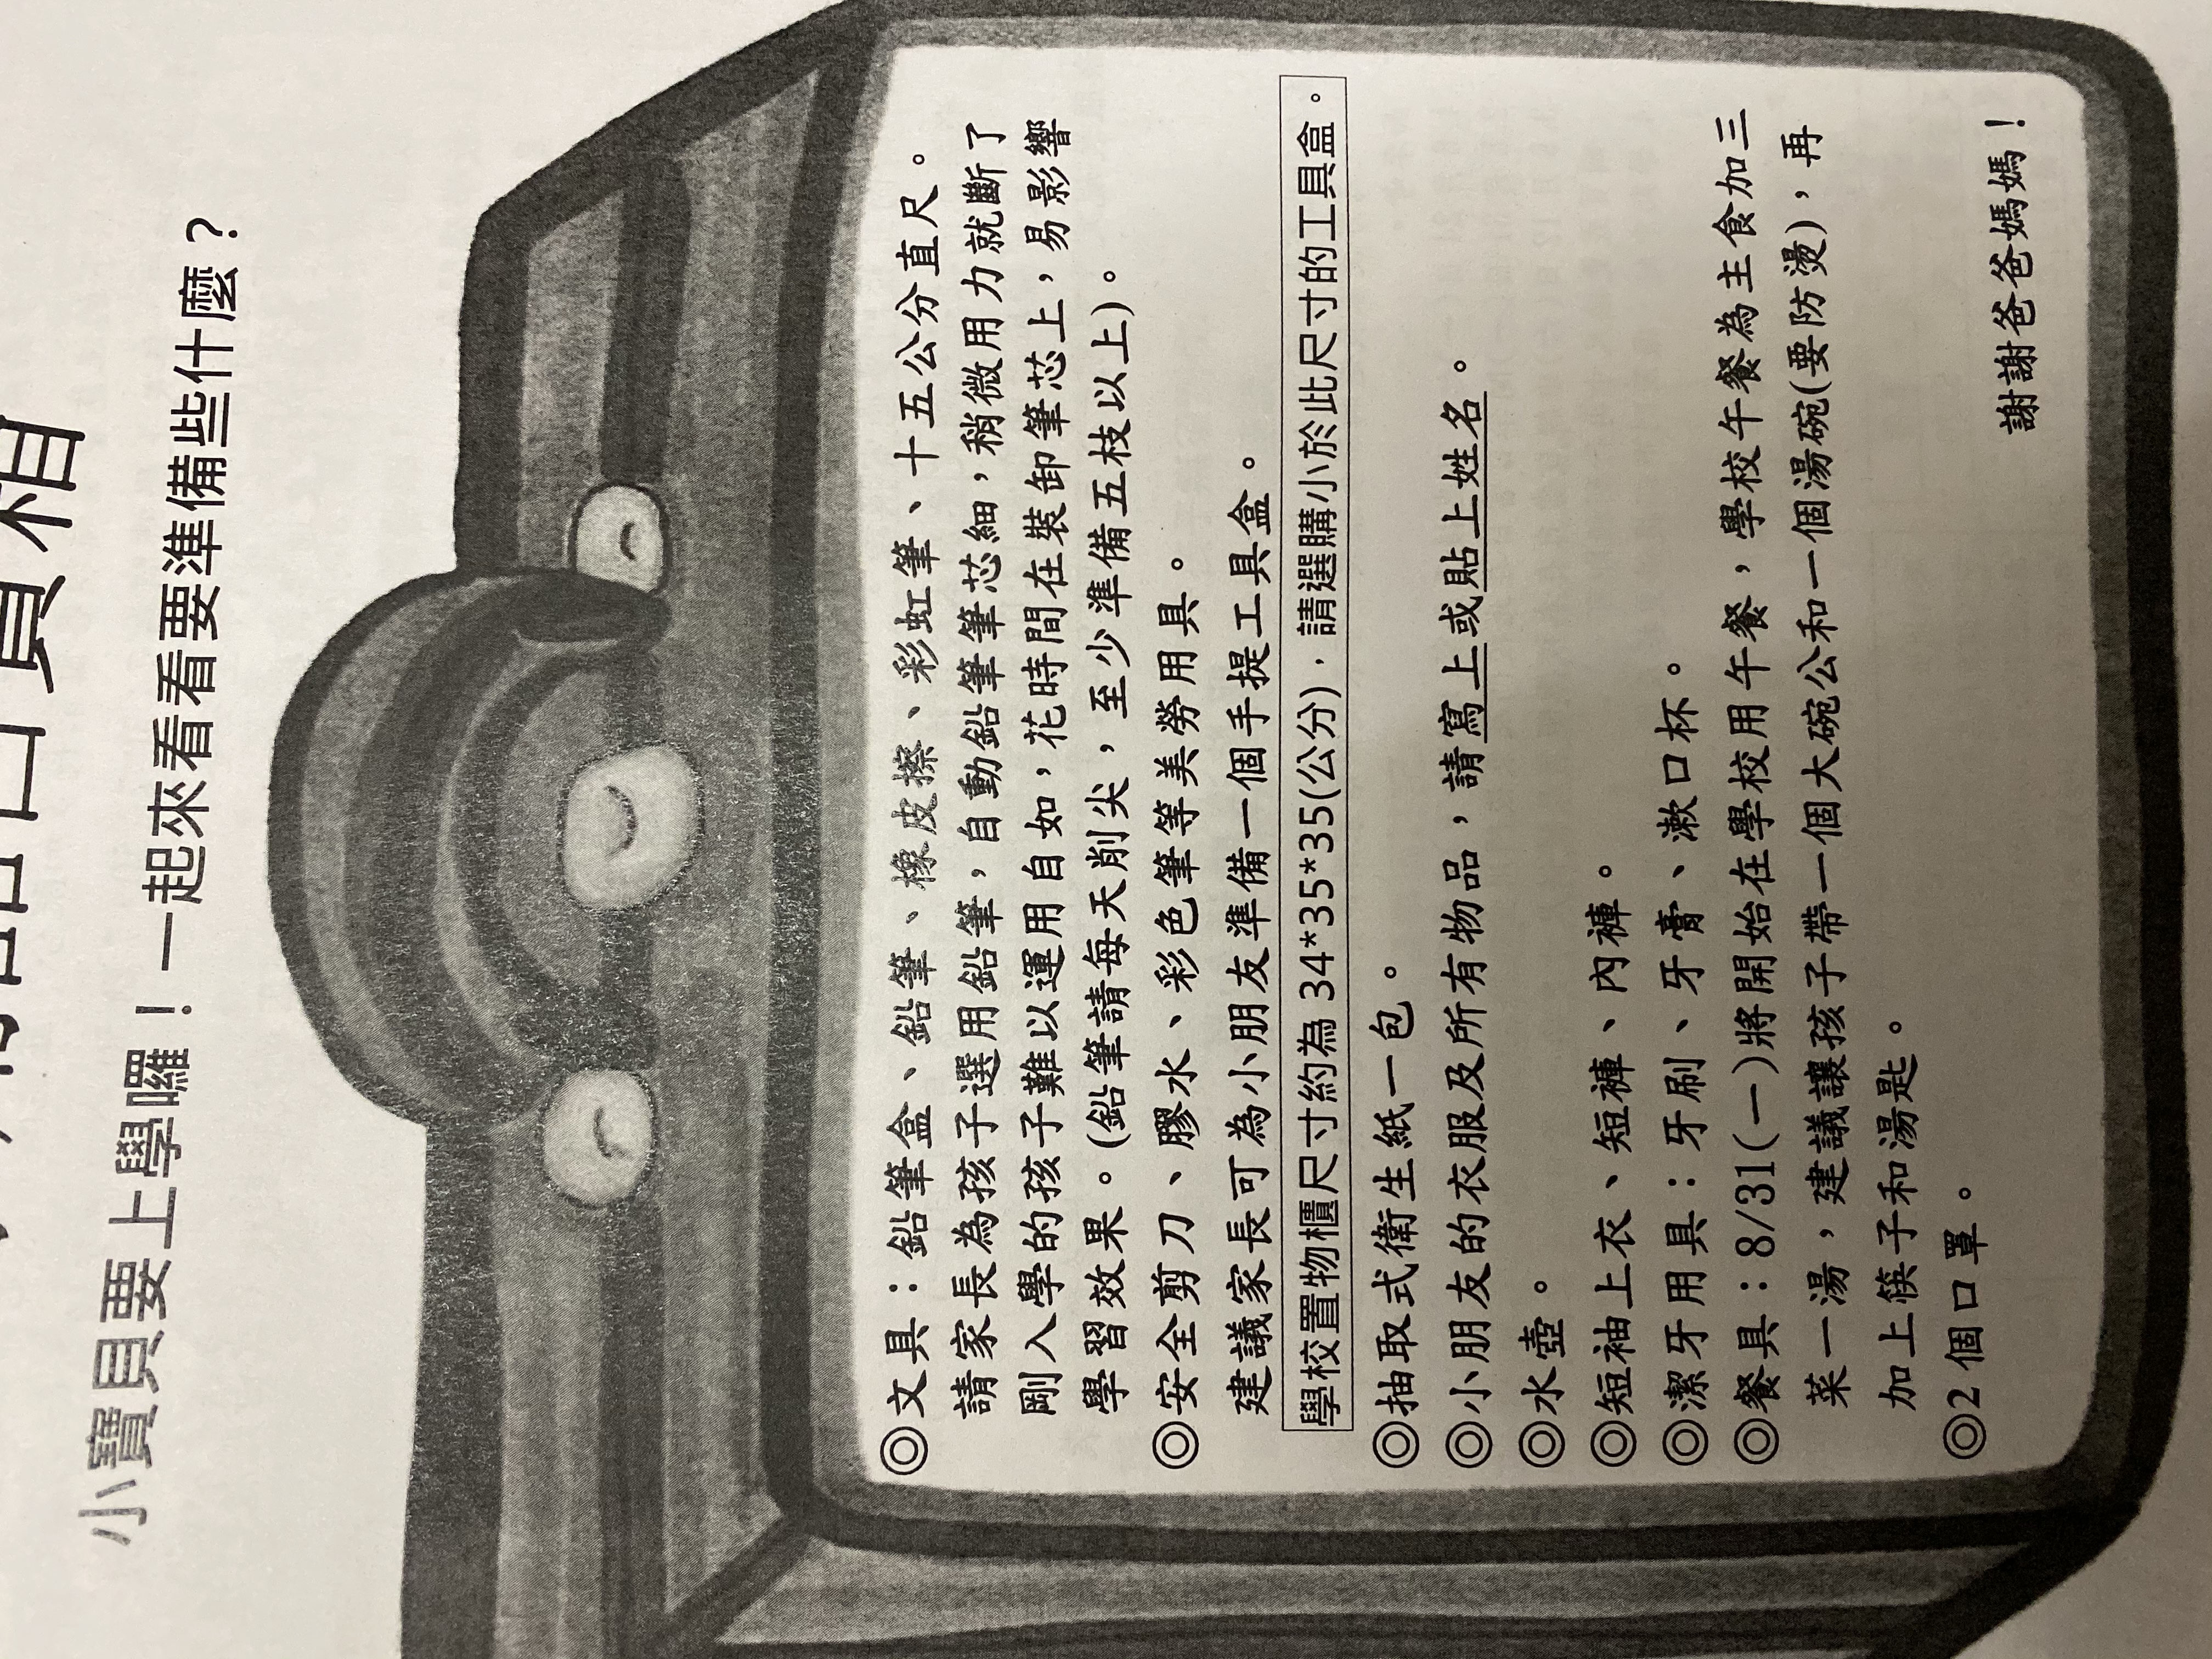 小寶貝要上學囉！一起來看看要準備些什麼？
◎文具：鉛筆盒、鉛筆、橡皮擦、彩虹筆、十五公分直尺。
請家長為孩子選用鉛筆，自動鉛筆筆芯細，稍微用力就斷了
剛入學的孩子難以運用自如，花時間在裝卸筆芯上，易影響
學習效果。(鉛筆請每天削尖，至少準備五枝以上)。
◎安全剪刀、膠水、彩色筆等美勞用具。
建議家長可為小朋友準備一個手提工具盒。
學校置物櫃尺寸約為 34*35*35(公分)，請選購小於此尺寸的工具盒。
◎抽取式衛生紙一包。
◎小朋友的衣服及所有物品，請寫上或貼上姓名。
◎水壺。
◎短袖上衣、短褲、內褲。
◎潔牙用具：牙刷、牙膏、漱口杯。
◎餐具：8/31(一)將開始在學校用午餐，學校午餐為主食加三
菜一湯，建議讓孩子帶一個大碗公和一個湯碗(要防燙)，再
加上筷子和湯匙。
◎2 個口罩。
謝謝爸爸媽媽！